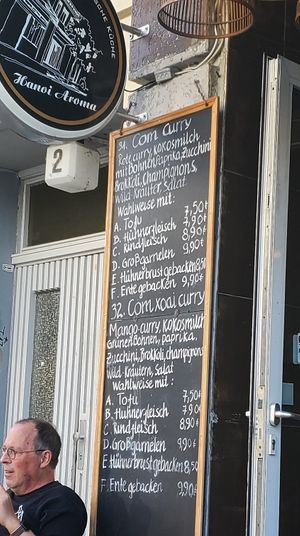 SCHE KÜCHE
Hanoi Aroma
2
31. Com Curry
Rote curry, Kokosmilch
mit Bohnen, Paprika, Zucchini
Brokkoli, Champignons,
wild Kräuter, Salat
Wahlweise mit:
A. Tofu 7,50€
B. Hühnerfleisch 7,90€
C. Rindfleisch 8,90€
D. Großgarnelen 9,90€
E. Hühnerbrust gebacken 8,50
F. Ente gebacken 9,90€
32. Com xoai curry
Mango-curry, Kokosmilch
Grünen Bohnen, paprika,
Zucchini, Brokkoli, champignon
Wild-Kräutern, Salat
wahlweise mit:
A. Tofu 7,50€
B. Huhnerfleisch 7,90€
C. Rindfleisch 8,90€
D. Großgarnelen 9,90€
E. Hühnerbrust gebacken 8,50
F. Ente gebacken 9,90€